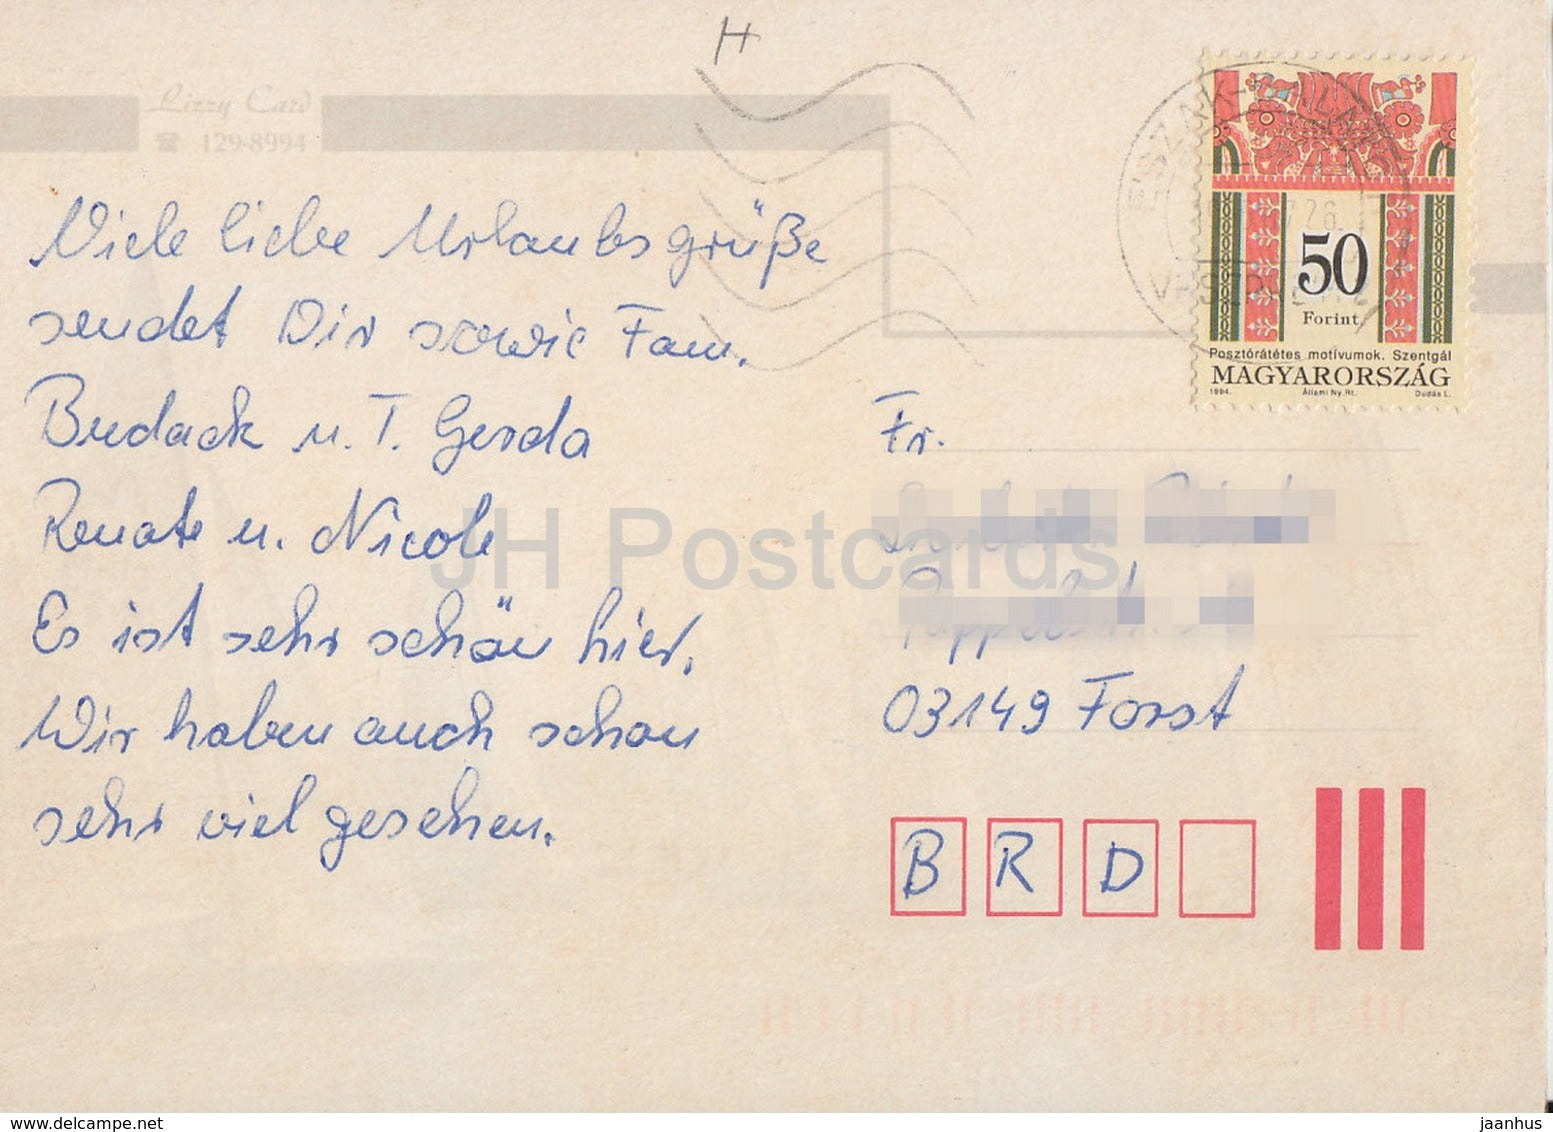 H
Lizzy Card
☎ 129-8994
Viele liebe Urlaubsgrüße
sendet Dir sowie Fam.
Budack u. T. Gerda
Renate u. Nicole
Es ist sehr schön hier.
Wir haben auch schon
sehr viel gesehen.
50
Forint
Posztórátétes motívumok. Szentgál
MAGYARORSZÁG
1994. Állami Ny. Rt. Dudás L.
Fr.
03149 Forst
B R D
JH Postcards
delcampe.net
jaanhus